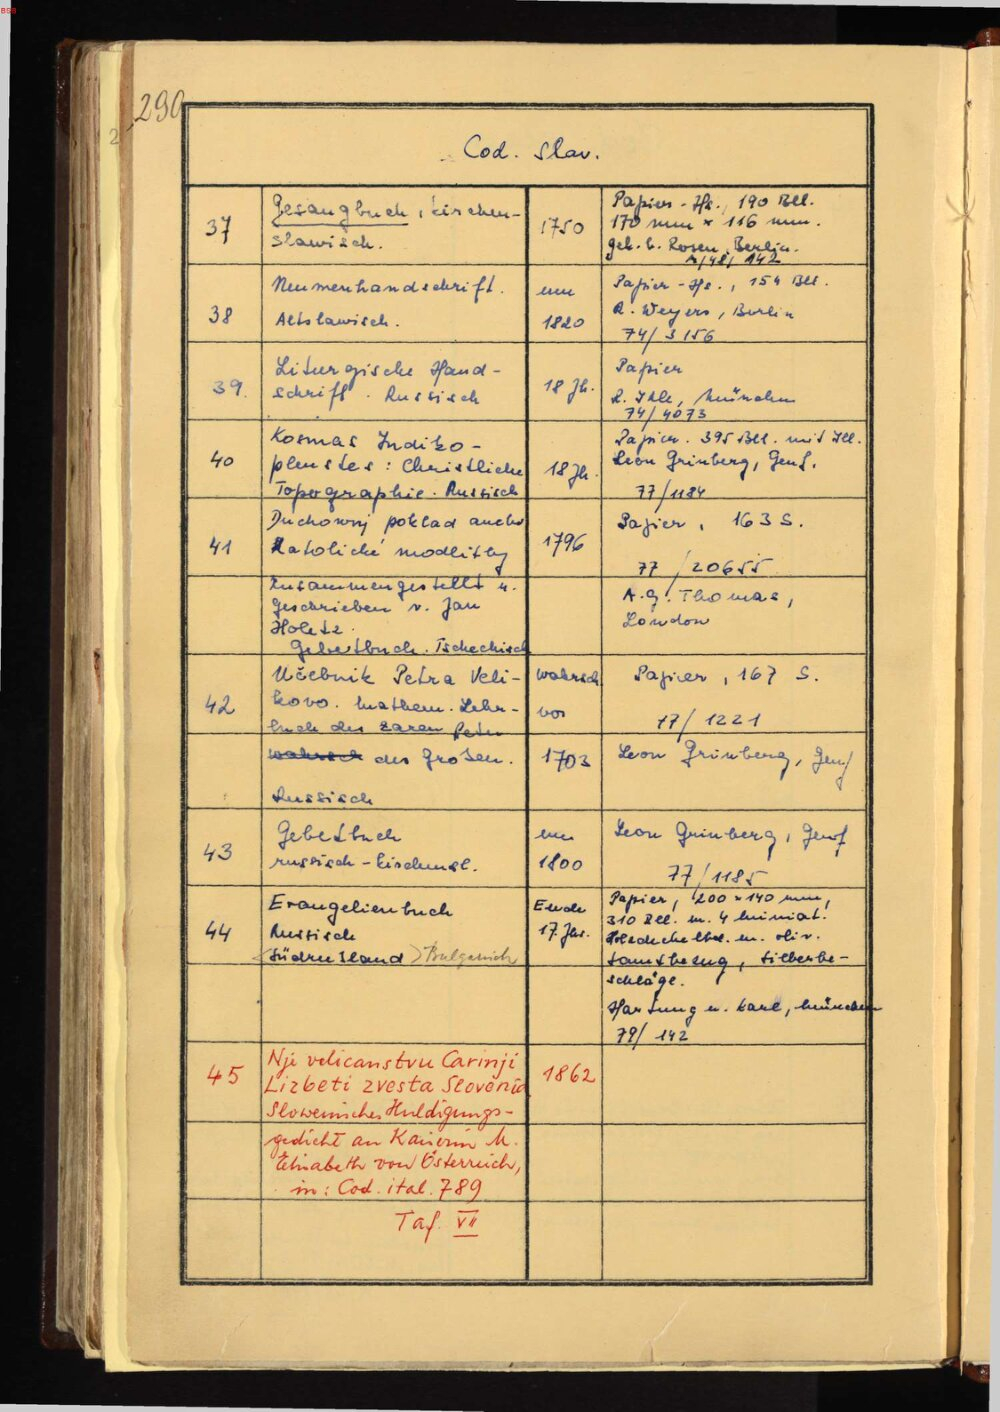 BSB
290
2
Cod. Slav.
37
Gesangbuch, kirchen-
slawisch.
1750
Papier-Hs., 190 Bll.
170 mm x 116 mm.
geb. b. Rosen, Berlin.
A/48/142
38
Neumenhandschrift.
Altslawisch.
um
1820
Papier-Hs., 154 Bll.
R. Weyers, Berlin
74/3156
39.
Liturgische Hand-
schrift. Russisch
18 Jh.
Papier
R. Ihle, München
74/4073
40
Kosmas Indiko-
pleustes: Christliche
Topographie. Russisch
18 Jh.
Papier. 395 Bll. mit Ill.
Leon Grinberg, Genf.
77/1184
41
Duchownj poklad aneb
Katolické modlitby
1796
Papier, 163 S.
77/20655
Zusammengestellt u.
geschrieben v. Jan
Holetz.
Gebetbuch. Tschechisch
A.G. Thomas,
London
42
Učebnik Petra Veli-
kovo. Mathem. Lehr-
buch des Zaren Peter
wahrsch
vor
Papier, 167 S.
77/1221
wahrsch des Großen.
Russisch
1703
Leon Grinberg, Genf
43
Gebetbuch
russisch-kirchensl.
um
1800
Leon Grinberg, Genf
77/1185
44
Evangelienbuch
Russisch
(Südrussland) Bulgarisch
Ende
17. Jhs.
Papier, 200 x 140 mm,
310 Bll. m. 4 Miniat.
Holzdeckelbd. m. oliv.
Samtbezug, Silberbe-
schläge.
Hartung u. Karl, München
79/142
45
Nji velicanstvu Carinji
Lizbeti zvesta Slovénia
Slowenisches Huldigungs-
gedicht an Kaiserin M.
Elisabeth von Österreich,
in: Cod. ital. 789
Taf. VII
1862